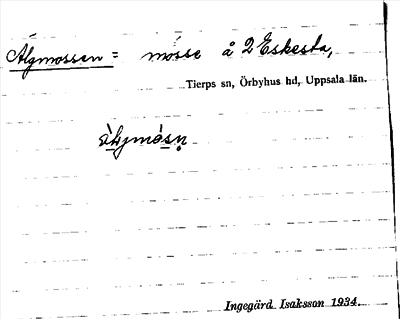 Älgmossen = mosse å 2 Eskesta,
Tierps sn, Örbyhus hd, Uppsala län.
Ingegärd Isaksson 1934.